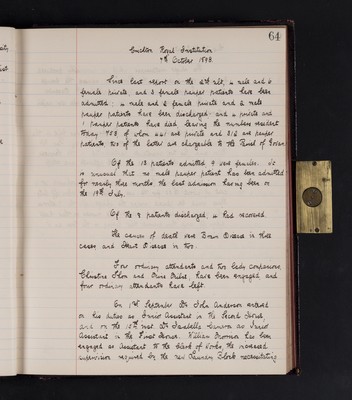 64
Crichton Royal Institution
7th October 1898
Since last report on the 4th ult, 4 male and 6
female private and 3 female pauper patients have been
admitted; 4 male and 2 female private and 2 male
pauper patients have been discharged; and 4 private and
1 pauper patients have died leaving the numbers resident
today 758 of whom 441 are private and 316 are pauper
patients, two of the latter are chargeable to the Parish of Govan.
Of the 13 patients admitted 9 were females. It
is unusual that no male pauper patient has been admitted
for nearly three months the last admission having been on
the 19th July.
Of the 8 patients discharged, 4 had recovered.
The causes of death were Brain Disease in three
cases and Heart Disease in two.
Four ordinary attendants and two lady companions,
Christina Thom and have been engaged, and
four ordinary attendants have left.
On 1st September Dr John Anderson entered
on his duties as Junior Assistant in the Second House,
and on the inst Dr Isabella as Junior
Assistant in the First House. William has been
engaged as Assistant to the Clerk of Works, the increased
supervision required by the new Laundry Block necessitating